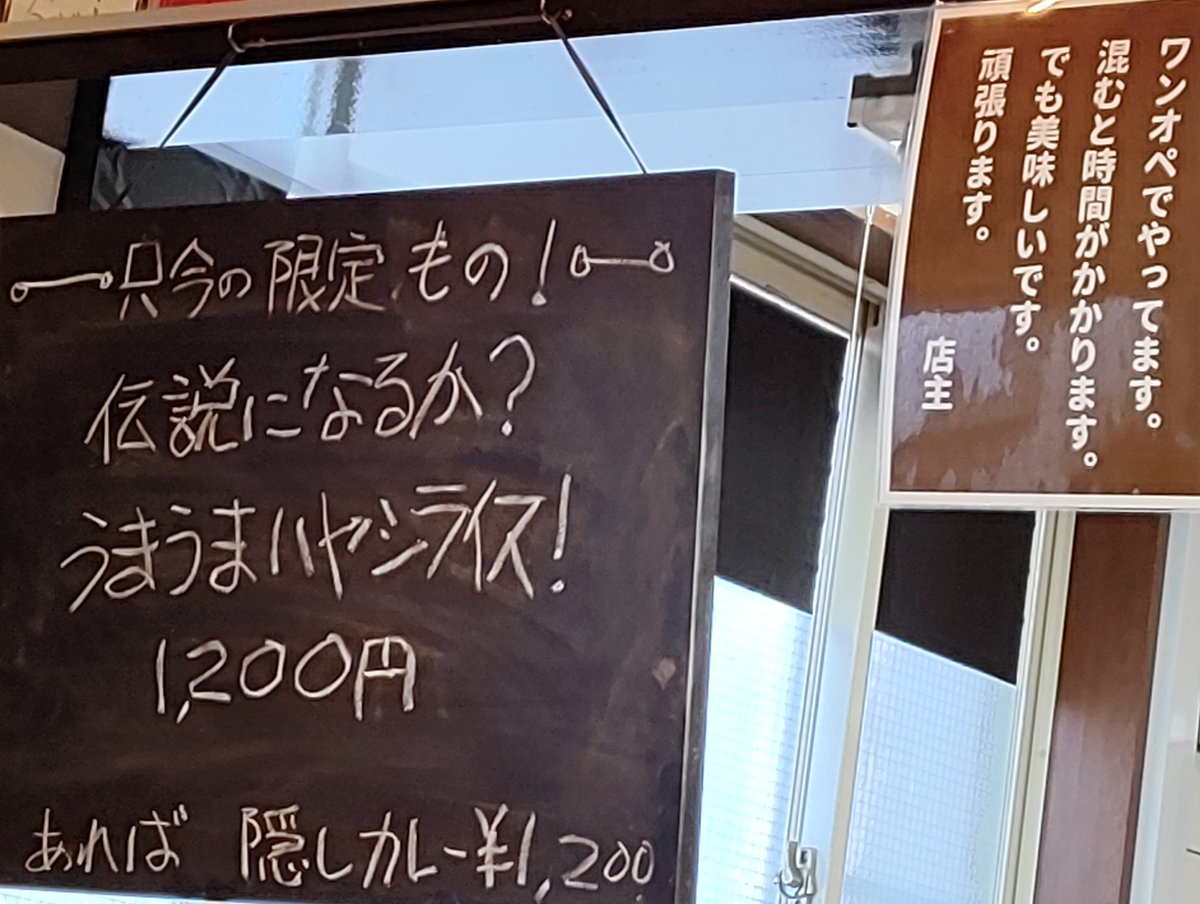 只今の限定もの!
伝説になるか?
うまうまハヤシライス!
1,200円
あれば 隠しカレー¥1,200
ワンオペでやってます。
混むと時間がかかります。
でも美味しいです。
頑張ります。
店主